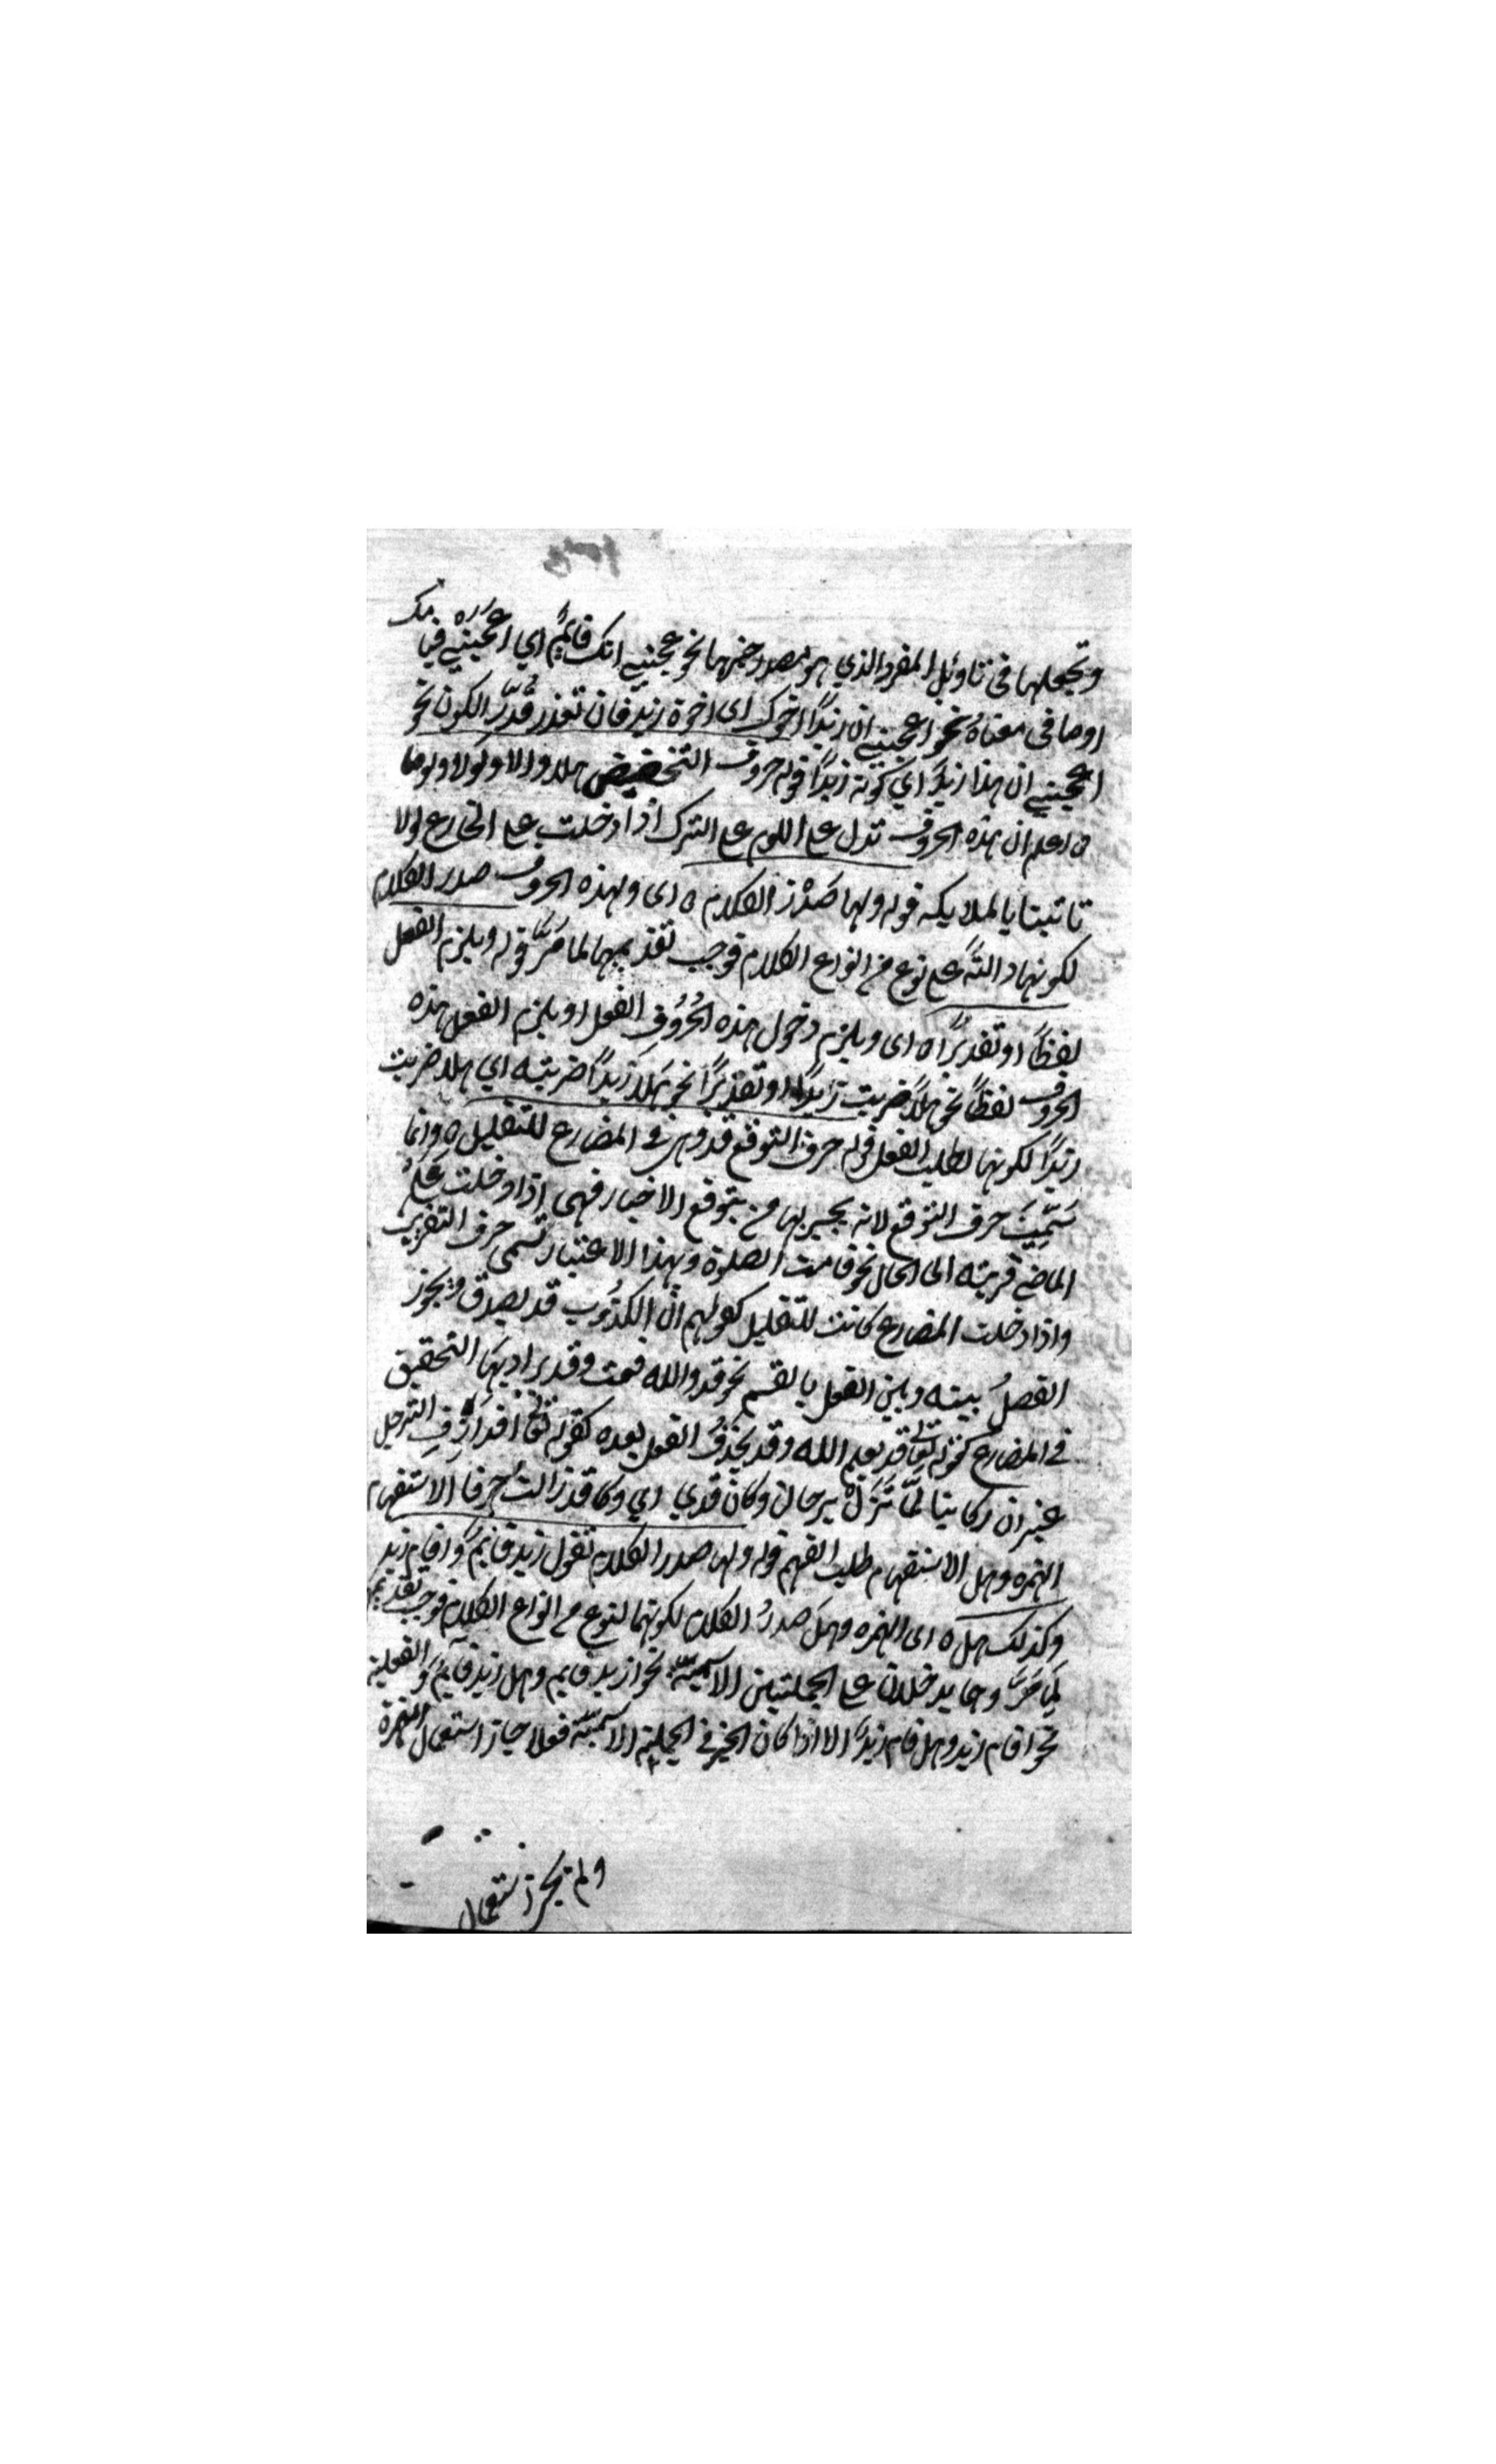 وتجعلها في تاويل المفرد الذي هو مصدر خبرها نحو عجبني انك قائم اي اعجبني قيامك
او ما في معناه نحو اعجبني ان زيدا اخوك اى اخوة زيد فان تعذر قدر الكون نحو
اعجبني ان هذا زيد اي كونه زيدا قوله حروف التحضيض هلا والا ولولا ولوما
اعلم ان هذه الحروف تدل على اللوم على الترك اذا دخلت على
تاتينا بالملايكه قوله ولها صدر الكلام ه اى ولهذه الحروف صدر الكلام
لكونها دالة على نوع من انواع الكلام فوجب تقديمها لما مر قوله ويلزم الفعل
لفظا او تقديرا ه اى ويلزم دخول هذه الحروف الفعل او يلزم الفعل هذه
الحروف لفظا نحو هلا ضربت زيدا او تقديرا نحو هلا زيدا ضربته اي هلا ضربت
زيدا لكونها لطلب الفعل قوله حرف التوقع قد وهي في المضارع للتقليل ه وانما
سميت حرف التوقع لانه يجيبر بها من يتوقع الاخبار فهى اذا دخلت على
الماضي قربته الى الحال نحو قد قامت الصلوة وبهذا الاعتبار تسمى حرف التقريب
واذا دخلت المضارع كانت للتقليل كقولهم ان الكذوب قد يصدق ويجوز
الفصل بينه وبين الفعل بالقسم نحو قد والله قمت وقد يراد بها التحقيق
في المضارع كقوله تعالى قد يعلم الله وقد يحذف الفعل بعده كقوله افد الترحل
غير ان ركابنا لما تزل برحالنا وكان قدي اي وكان قد زالت حرفا الاستفهام
الهمزه وهل الاستفهام طلب الفهم قوله ولها صدر الكلام تقول زيد قايم واقام زيد
وكذلك هل ه اى الهمزه وهل صدر الكلام لكونهما لنوع من انواع الكلام فوجب تقديم
لما مر وهما يدخلان على الجملتين الاسمية نحو ازيد قايم وهل زيد قايم والفعلية
نحو اقام زيد وهل قام زيد الا اذا كان الخبر في الجملة الاسمية فعلا جاز استعمال الهمزة
ولم يجز استعمال